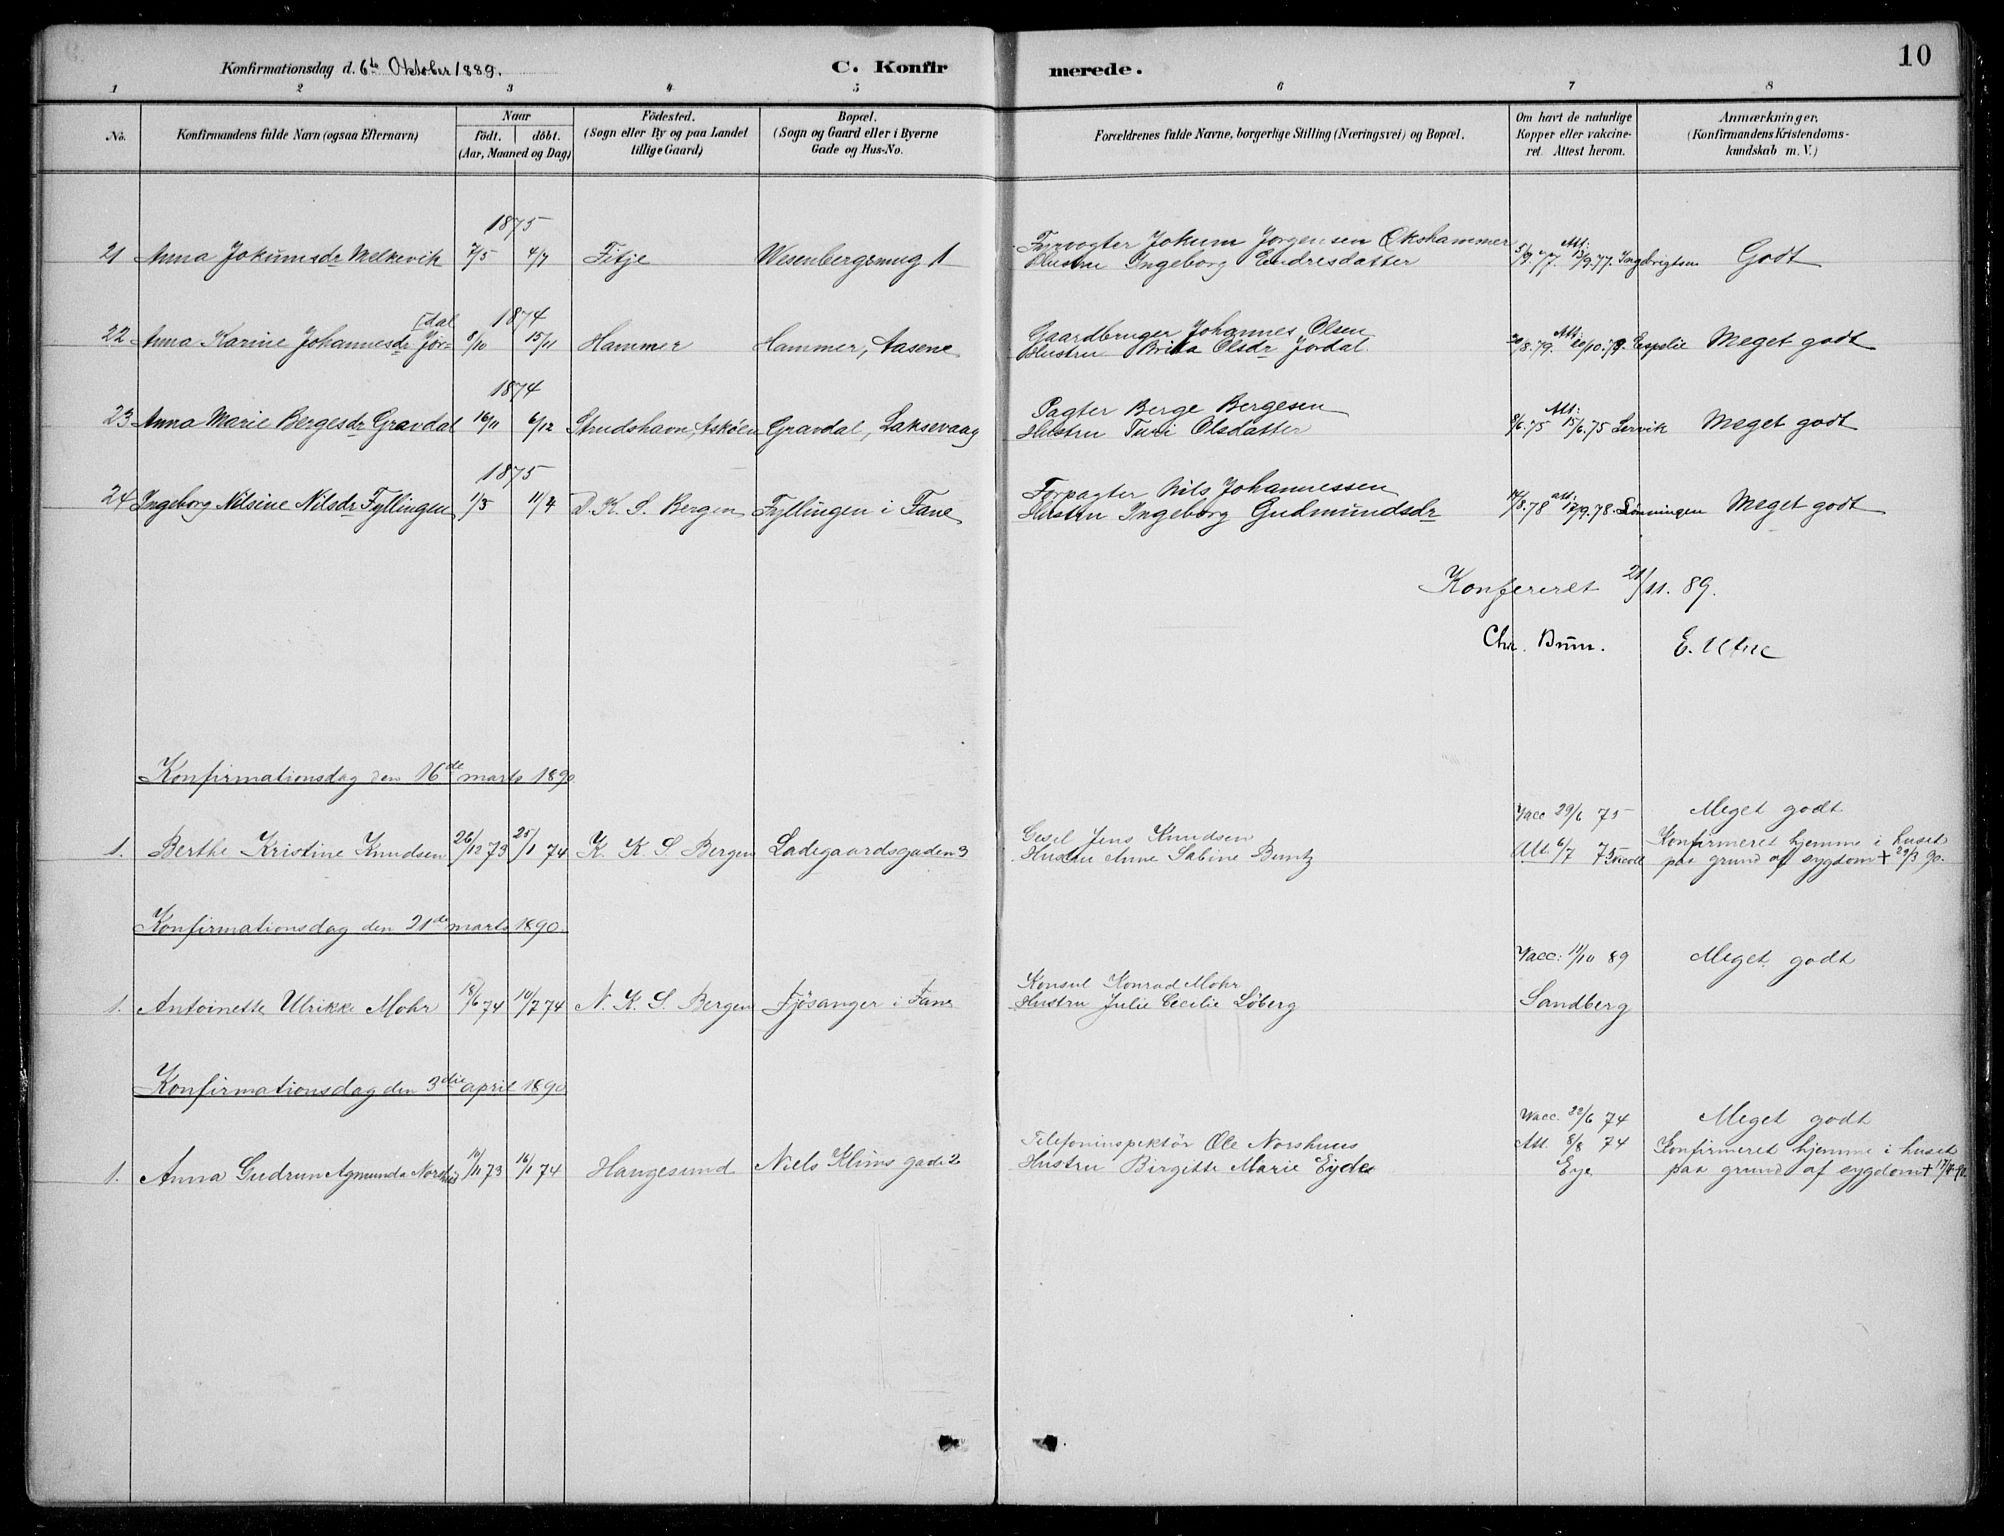 10
Konfirmationsdag d. 6te Oktober 1889.
C. Konfirmerede.
1 2 3 4 5 6 7 8
No.
Konfirmandens fulde Navn (ogsaa Efternavn)
Naar
födt. döbt.
(Aar, Maaned og Dag)
Födested.
(Sogn eller By og paa Landet
tillige Gaard)
Bopæl.
(Sogn og Gaard eller i Byerne
Gade og Hus-No.
Forældrenes fulde Navne, borgerlige Stilling (Næringsvei) og Bopæl.
Om havt de naturlige
Kopper eller vakcine-
ret. Attest herom.
Anmærkninger.
(Konfirmandens Kristendoms-
kundskab m. V.)
1875
21 Anna Jokumsdr Melkevik 7/5 4/7 Fitje Wesenbergsmug 1
Fyrvogter Jokum Jørgensen Okshammer
Hustru Ingeborg Endresdatter
5/9.77. Att: 13/9.77. Ingebrigtsen Godt
1874
22 Anna Karine Johannesdr Jør-
dal 8/10 15/11 Hammer Hammer, Aasene
Gaardbruger Johannes Olsen
Hustru Brita Olsdr Jordal.
20/8.79. Att: 20/10.79. Espelie Meget godt
1874
23 Anna Marie Bergesdr Gravdal 16/11 6/12 Strudshavn, Askøen Gravdal, Laksevaag
Pagter Berge Bergesen
Hustru Turi Olsdatter
8/6.75 Att: 15/6.75 Lervik Meget godt
1875
24 Ingeborg Nilsine Nilsdr Fyllingen 1/3 11/4 D. K. S. Bergen Fyllingen i Fane
Forpagter Nils Johannessen
Hustru Ingeborg Gudmundsdr
14/8.78 att: 17/9.78. Lønningen Meget godt
Konfereret 21/11. 89.
Chr. Brun. E. Utne
Konfirmationsdag den 16de marts 1890
1. Berthe Kristine Knudsen 26/12 73 25/1 74 K. K. S Bergen Ladegaardsgaden 3
Gesel Jens Knudsen
Hustru Anne Sabine Buntz
Vacc 29/6 75 Meget godt
Att. 6/7 75 Konfirmeret hjemme i huset
paa grund af sygdom + 29/3 90.
Konfirmationsdag den 21de marts 1890
1. Antoinette Ulrikke Mohr 18/6 74 10/7 74 N. K. S. Bergen Fjøsanger i Fane
Konsul Konrad Mohr
Hustru Julie Cecilie Løberg
Vacc: 11/10 89 Meget godt
Sandberg
Konfirmationsdag den 3die april 1890
1. Anna Gudrun Agmunda Norshus 10/11 73 16/1 74 Haugesund Niels Klims gade 2
Telefoninspektør Ole Norshuus
Hustru Birgitte Marie Eyde
Vacc. 22/6 74 Meget godt
Att. 8/8 74 Konfirmeret hjemme i huset
Eye paa grund af sygdom + 17/4 90.